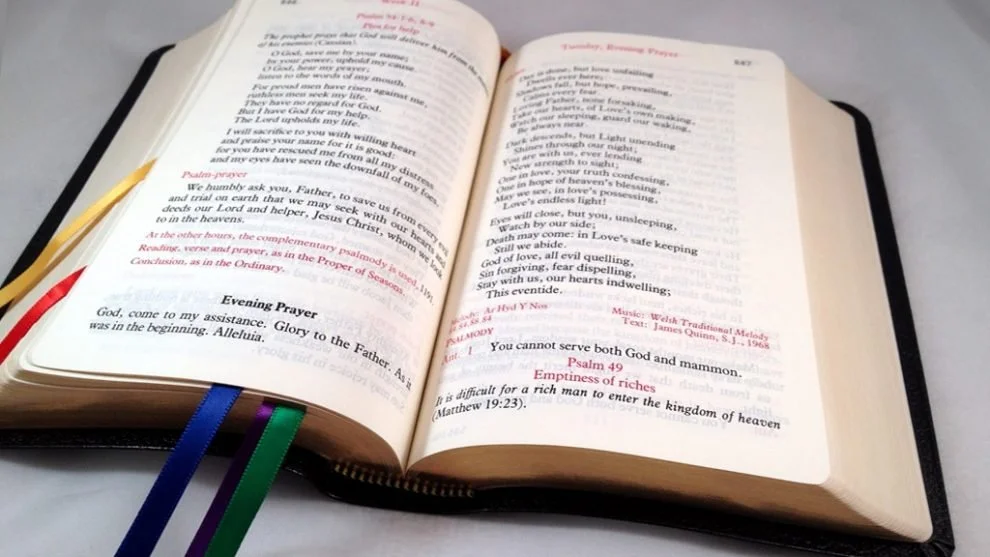 Week II
Psalm 54:1-6, 8-9
Plea for help
The prophet prays that God will deliver him from the
of his enemies (Cassian).
O God, save me by your name;
by your power, uphold my cause.
O God, hear my prayer;
listen to the words of my mouth.
For proud men have risen against me,
ruthless men seek my life.
They have no regard for God.
But I have God for my help.
The Lord upholds my life.
I will sacrifice to you with willing heart
and praise your name for it is good:
for you have rescued me from all my distress
and my eyes have seen the downfall of my foes.
Psalm-prayer
We humbly ask you, Father, to save us from every evil
and trial on earth that we may seek with our hearts and
deeds our Lord and helper, Jesus Christ, whom we look
to in the heavens.
At the other hours, the complementary psalmody is used, 1191.
Reading, verse and prayer, as in the Proper of Seasons.
Conclusion, as in the Ordinary.
Evening Prayer
God, come to my assistance. Glory to the Father. As it
was in the beginning. Alleluia.
Tuesday, Evening Prayer
847
Day is done, but love unfailing
Dwells ever here;
Shadows fall, but hope, prevailing,
Calms every fear.
Loving Father, none forsaking,
Take our hearts, of Love's own making,
Watch our sleeping, guard our waking,
Be always near.
Dark descends, but Light unending
Shines through our night;
You are with us, ever lending
New strength to sight;
One in love, your truth confessing,
One in hope of heaven's blessing,
May we see, in love's possessing,
Love's endless light!
Eyes will close, but you, unsleeping,
Watch by our side;
Death may come: in Love's safe keeping
Still we abide.
God of love, all evil quelling,
Sin forgiving, fear dispelling,
Stay with us, our hearts indwelling;
This eventide.
Melody: Ar Hyd Y Nos
84.84.88.84
Music: Welsh Traditional Melody
Text: James Quinn, S.J., 1968
PSALMODY
Ant. 1 You cannot serve both God and mammon.
Psalm 49
Emptiness of riches
It is difficult for a rich man to enter the kingdom of heaven
(Matthew 19:23).